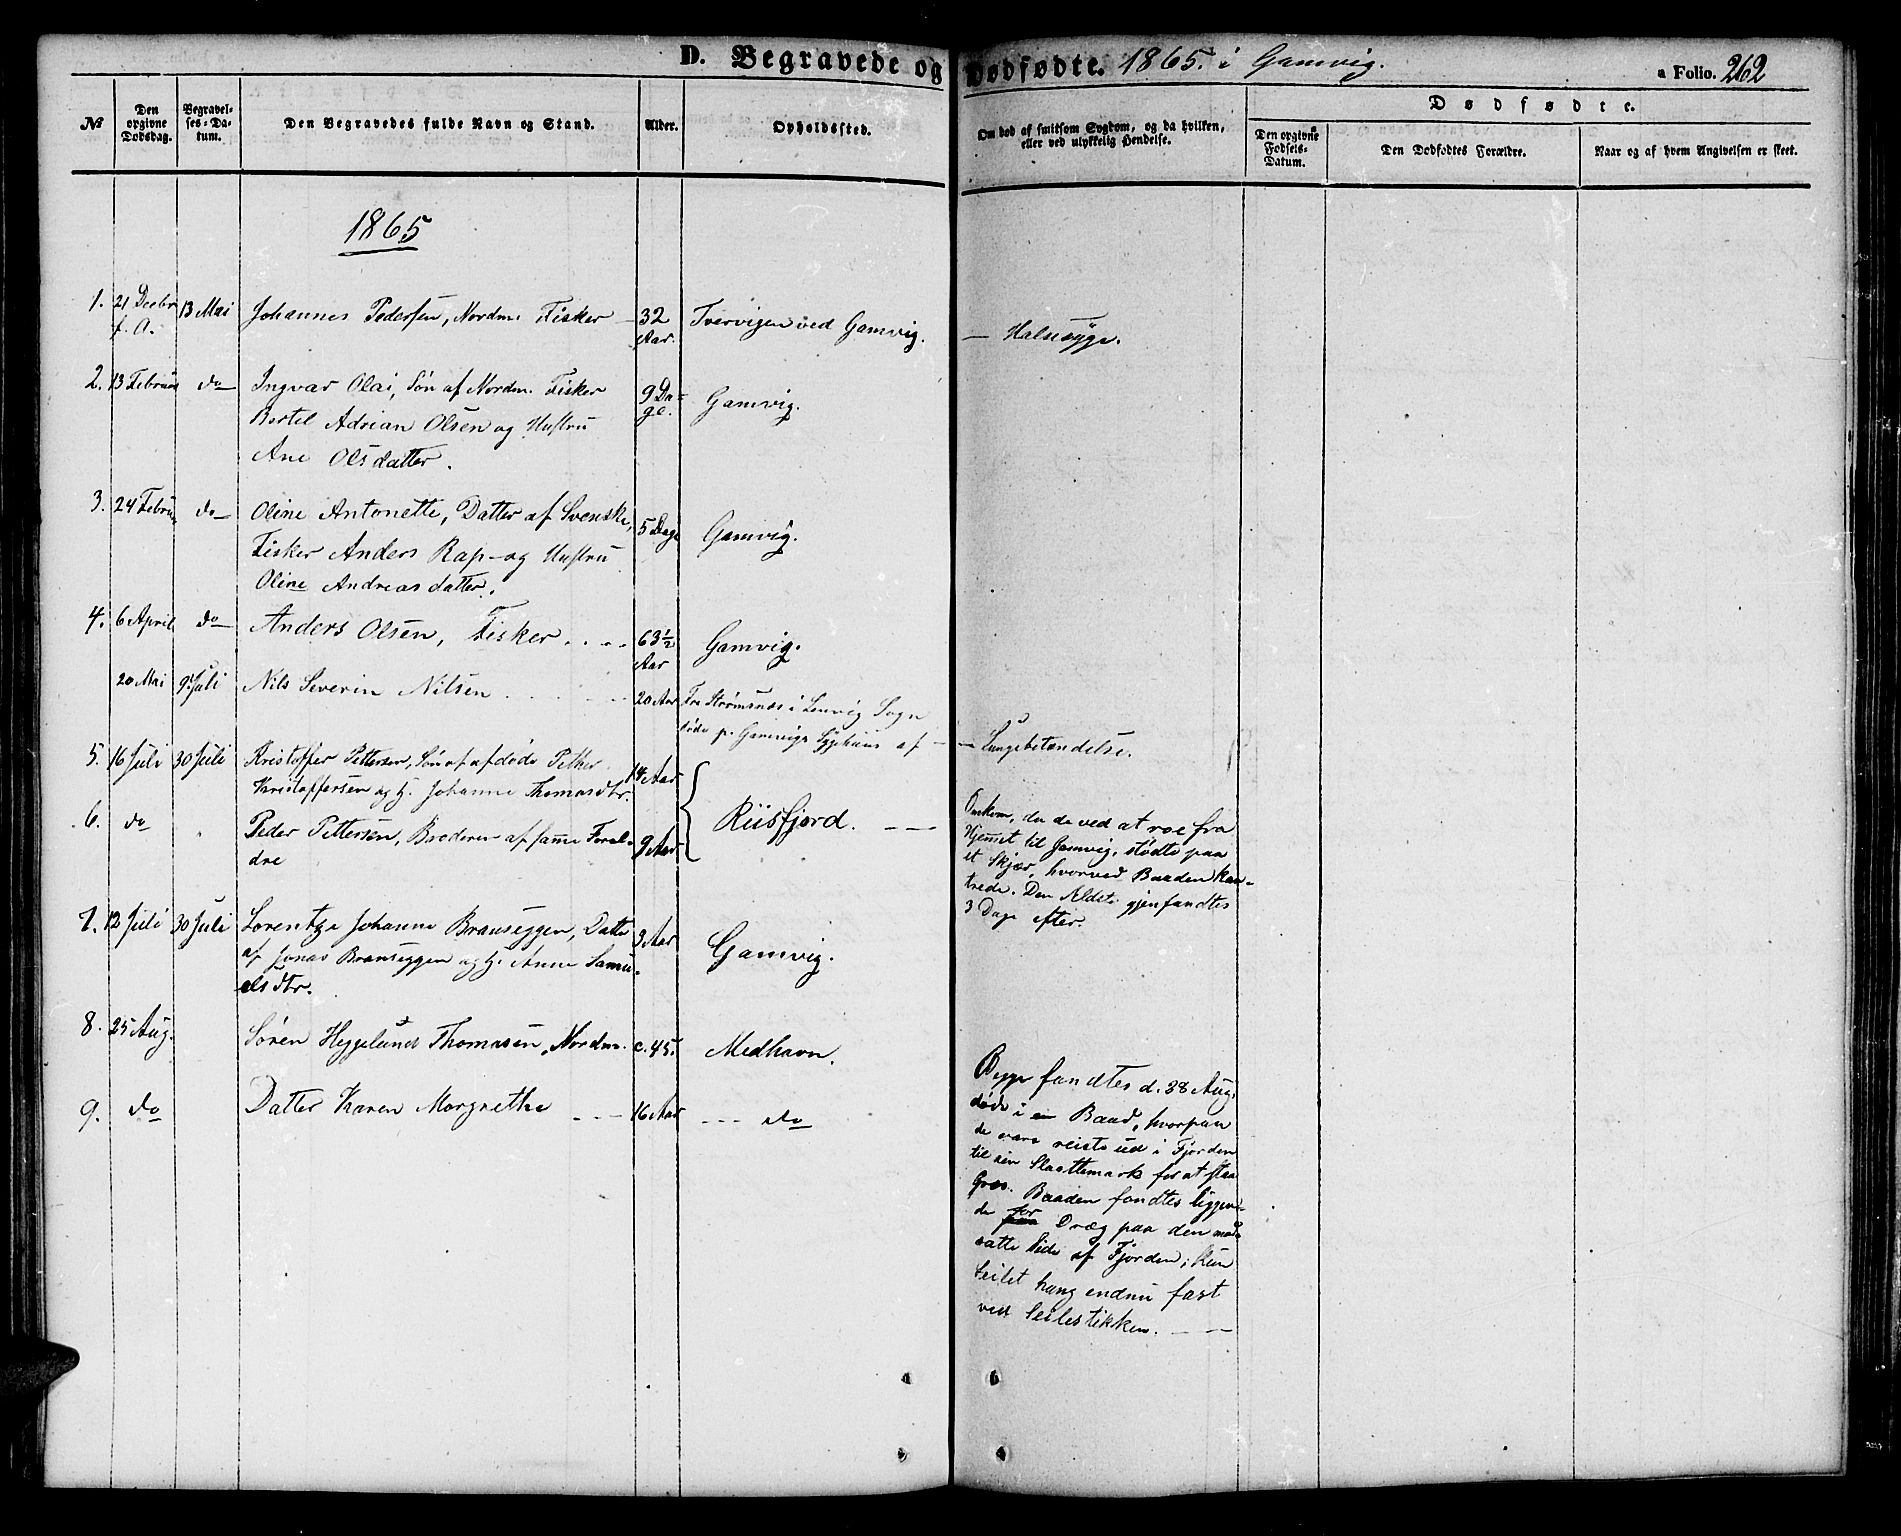 D. Begravede og Dødfødte. 1865. i Gamvig.
a Folio. 262
No
Den opgivne Dødsdag.
Begravelses-Datum.
Den Begravedes fulde Navn og Stand.
Alder.
Opholdssted.
Om død af smitsom Sygdom, og da hvilken, eller ved ulykkelig Hendelse.
Dødfødte.
Den opgivne Fødsels-Datum.
Den Dødfødtes Forældre.
Naar og af hvem Angivelsen er skeet.
1865
1. 21 Decbr f. A. 13 Mai Johannes Pedersen, Nordm. Fisker 32 Aar. Tvervigen ved Gamvig. — Halssyge.
2. 13 Februar do Ingvar Olai, Søn af Nordm. Fisker 9 Da-
Bertel Adrian Olsen og Hustru ge. Gamvig.
Ane Olsdatter.
3. 24 Februar do Oline Antonette, Datter af Svenske,
Fisker Anders Rap- og Hustru 5 Dage Gamvig.
Oline Andreasdatter.
4. 6 April do Anders Olsen, Fisker. 63½ Aar Gamvig.
20 Mai 9 Juli Nils Severin Nilsen 20 Aar Fra Strømsnes i Lenvig Sogn
døde p. Gamvigs Sygehuus af — — Lungebetændelse.
5. 16 Juli 30 Juli Kristoffer Pettersen, Søn af afdøde Petter 14 Aar
Kristoffersen og H. Johanne Thomasdtr.
6. do Peder Pettersen, Broderen af samme Foræl- 9 Aar. Riisfjord.
dre
Omkom, da de ved at roe fra
Hjemmet til Gamvig, stødte paa
et Skjær, hvorved Baaden kan-
trede. Den Ældste gjenfandtes
3 Dage efter.
7. 12 Juli 30 Juli Lorentze Johanne Brauseggen, Datter 3 Aar
af Jonas Brauseggen og H. Anne Samu- Gamvig.
elsdtr.
8. 25 Aug. Søren Heggelund Thomasen, Nordm. c. 45. Medhavn.
9. do Datter Karen Margrethe 16 Aar do
Begge fandtes d. 28 Aug.
døde i en Baad, hvorpaa
de vare reiste ud i Fjorden
til sin Slaattemark for at slaa
Græs. Baaden fandtes liggen-
de for Dræg paa den mod-
satte Side af Fjorden; kun
Seilet hang endnu fast
ved Seilestikken.